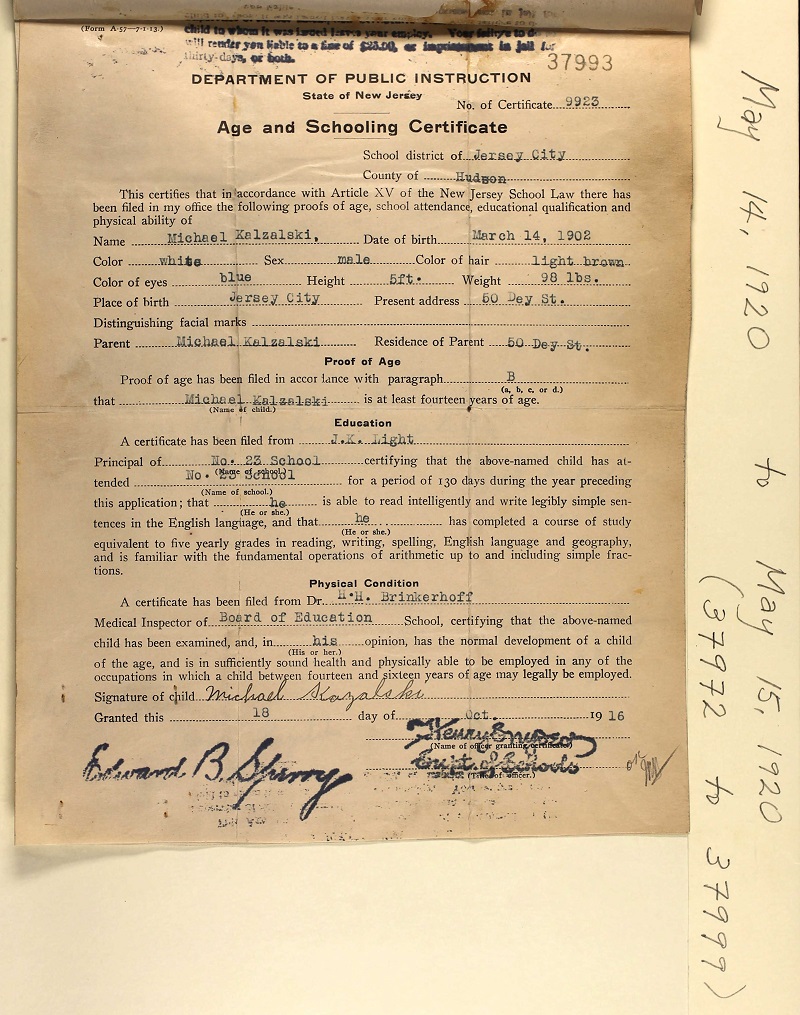 (Form A-57—7-1-13.)
child to whom it was issued leaves your employ. Your failure to do
will render you liable to a fine of $25.00, or imprisonment in jail for
thirty-days, or both.
37993
DEPARTMENT OF PUBLIC INSTRUCTION
State of New Jersey
No. of Certificate 9923
Age and Schooling Certificate
School district of Jersey City
County of Hudson
This certifies that in accordance with Article XV of the New Jersey School Law there has
been filed in my office the following proofs of age, school attendance, educational qualification and
physical ability of
Name Michael Kalzalski, Date of birth March 14, 1902
Color white Sex male Color of hair light brown
Color of eyes blue Height 5ft. Weight 98 lbs.
Place of birth Jersey City Present address 50 Dey St.
Distinguishing facial marks
Parent Michael Kalzalski Residence of Parent 50 Dey St.
Proof of Age
Proof of age has been filed in accordance with paragraph B
(a, b, c, or d.)
that Michael Kalzalski is at least fourteen years of age.
(Name of child.)
Education
A certificate has been filed from J.K. Light
Principal of No. 23 School certifying that the above-named child has at-
(Name of school.)
tended No. 23 School for a period of 130 days during the year preceding
(Name of school.)
this application; that he is able to read intelligently and write legibly simple sen-
(He or she.)
tences in the English language, and that he has completed a course of study
(He or she.)
equivalent to five yearly grades in reading, writing, spelling, English language and geography,
and is familiar with the fundamental operations of arithmetic up to and including simple frac-
tions.
Physical Condition
A certificate has been filed from Dr. H.H. Brinkerhoff
Medical Inspector of Board of Education School, certifying that the above-named
child has been examined, and, in his opinion, has the normal development of a child
(His or her.)
of the age, and is in sufficiently sound health and physically able to be employed in any of the
occupations in which a child between fourteen and sixteen years of age may legally be employed.
Signature of child Michael Kazalski
Granted this 18 day of Oct. 1916
Henry Snyder
(Name of officer granting certificate.)
Supt. of Schools
(Title of officer.)
Edward B. Sperry
May 14, 1920 to May 15, 1920
(37972 to 37999)